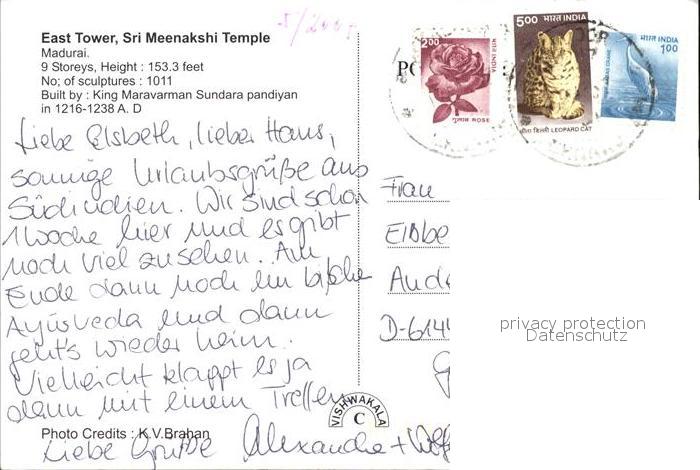 5/2007
East Tower, Sri Meenakshi Temple
Madurai.
9 Storeys, Height : 153.3 feet
No; of sculptures : 1011
Built by : King Maravarman Sundara pandiyan
in 1216-1238 A. D
Liebe Elsbeth, lieber Hans,
sonnige Urlaubsgrüße aus
Südindien. Wir sind schon
1 Woche hier und es gibt
noch viel zu sehen. Am
Ende dann noch ein bißche
Ayurveda und dann
geht's wieder heim.
Vielleicht klappt es ja
dann mit einem Treffen
Liebe Grüße Alexandra + Wolf
Photo Credits : K.V.Brahan
VISHWAKALA
C
PO
2.00
भारत INDIA
गुलाब ROSE
5.00 भारत INDIA
LEOPARD CAT
भारत INDIA
1.00
Frau
D-614
privacy protection
Datenschutz